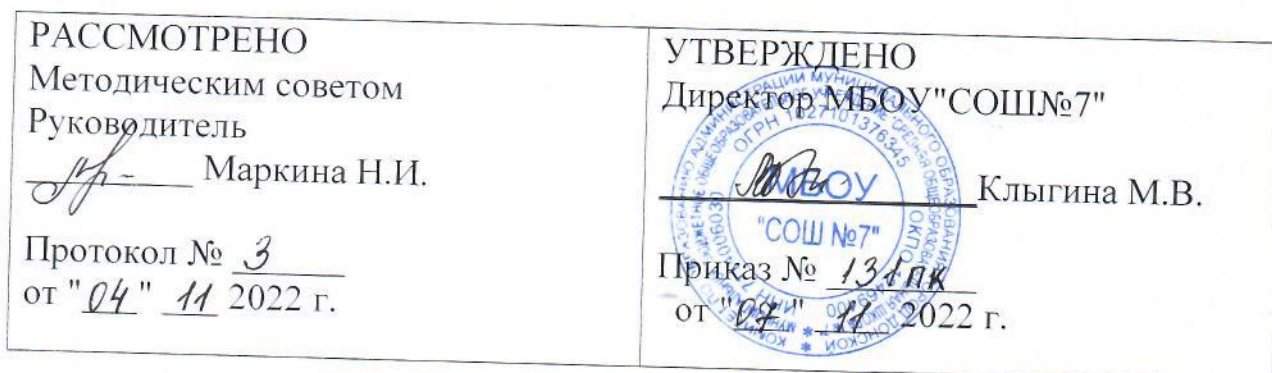 РАССМОТРЕНО
Методическим советом
Руководитель
Маркина Н.И.
Протокол № 3
от "04" 11 2022 г.
УТВЕРЖДЕНО
Директор МБОУ"СОШ№7"
Клыгина М.В.
Приказ № 131пк
от "07" 11 2022 г.
ОГРН 1027101376345
МБОУ
"СОШ №7"
ОКПО
ИНН